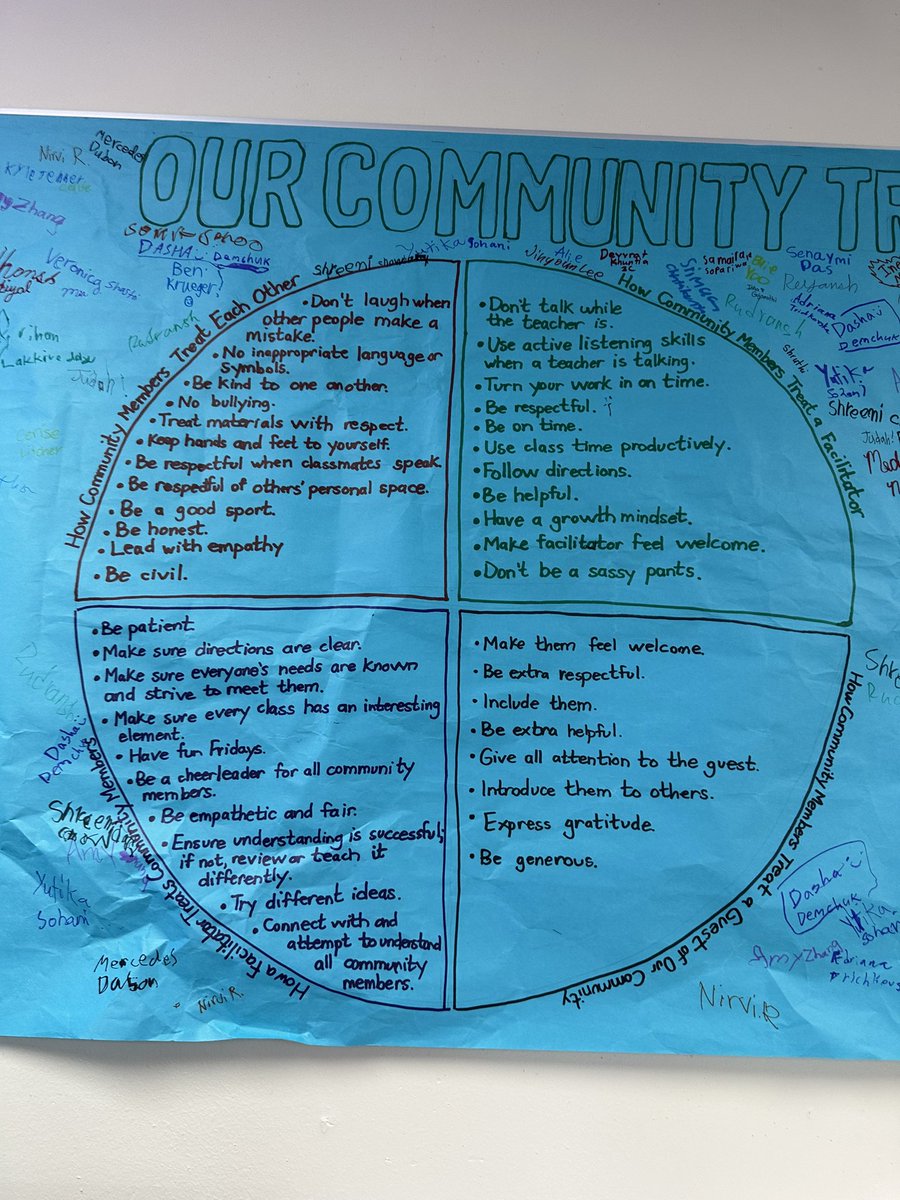 OUR COMMUNITY TR
Mercedes
Dubon
Nirvi R
Zhang
Veronica
DASHA Demchuk
Ben
Krueger!
Shreeni
Yutika Sohani
Alie
Jinyoun Lee
Devvrat
Khuntia
Samaira
Senaymi
Das
Reyansh
Adriana
Rudransh
Dasha
Demchuk
Rudransh
Judah!
Shrathi
Yutika
Sohani
Shreeni
Judah!
How Community Members Treat Each Other
• Don't laugh when
other people make a
mistake.
• No inappropriate language or
symbols.
• Be kind to one another.
• No bullying.
• Treat materials with respect.
• Keep hands and feet to yourself.
• Be respectful when classmates speak.
• Be respectful of others' personal space.
• Be a good sport.
• Be honest.
• Lead with empathy
• Be civil.
How Community Members Treat a Facilitator
• Don't talk while
the teacher is.
• Use active listening skills
when a teacher is talking.
• Turn your work in on time.
• Be respectful.
• Be on time.
• Use class time productively.
• Follow directions.
• Be helpful.
• Have a growth mindset.
• Make facilitator feel welcome.
• Don't be a sassy pants.
How a Facilitator Treats Community Members
• Be patient.
• Make sure directions are clear.
• Make sure everyone's needs are known
and strive to meet them.
• Make sure every class has an interesting
element.
• Have fun Fridays.
• Be a cheerleader for all community
members.
• Be empathetic and fair.
• Ensure understanding is successful;
if not, review or teach it
differently.
• Try different ideas.
• Connect with and
attempt to understand
all community
members.
How Community Members Treat a Guest of Our Community
• Make them feel welcome.
• Be extra respectful.
• Include them.
• Be extra helpful.
• Give all attention to the guest.
• Introduce them to others.
• Express gratitude.
• Be generous.
Rudransh
Dasha
Demchuk
Shreeni
Yutika
Sohani
Mercedes
Dubon
Nirvi R.
Dasha
Demchuk
Amy Zhang
Adriana
Nirvi.R